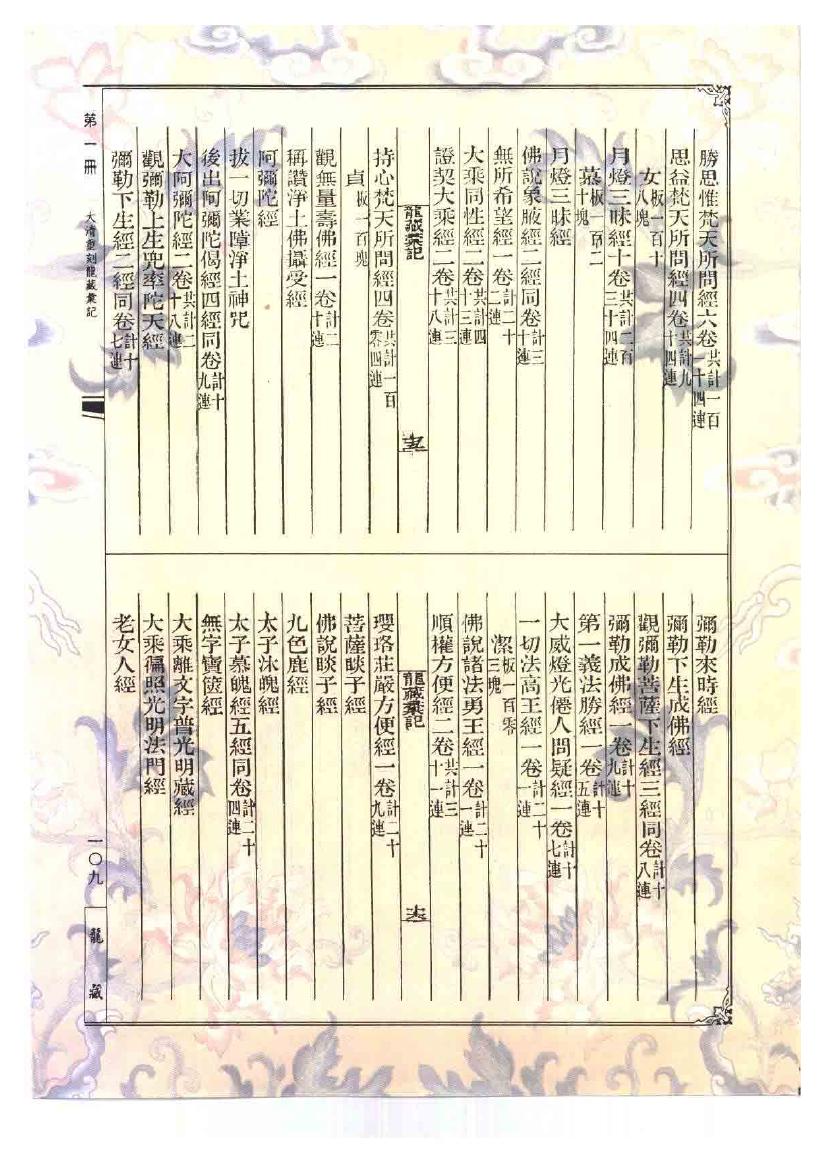 勝思惟梵天所問經六卷共計一百二十四連
思益梵天所問經四卷共計九十四連
女板一百十八塊
月燈三昧經十卷共計二百三十四連
慕板一百二十塊
月燈三昧經
佛說象腋經二經同卷計三十連
無所希望經一卷計二十連
大乘同性經二卷共計四十三連
證契大乘經二卷共計三十八連
龍藏彙記
十五
持心梵天所問經四卷共計一百零四連
貞板一百塊
觀無量壽佛經一卷計二十連
稱讚淨土佛攝受經
阿彌陀經
拔一切業障淨土神咒
後出阿彌陀偈經四經同卷計十九連
大阿彌陀經二卷共計二十八連
觀彌勒上生兜率陀天經
彌勒下生經二經同卷計十七連
彌勒來時經
彌勒下生成佛經
觀彌勒菩薩下生經三經同卷計十八連
彌勒成佛經一卷計十九連
第一義法勝經一卷計十五連
大威燈光僊人問疑經一卷計十七連
一切法高王經一卷計二十一連
潔板一百零三塊
佛說諸法勇王經一卷計二十一連
順權方便經二卷共計三十一連
龍藏彙記
十六
瓔珞莊嚴方便經一卷計二十九連
菩薩睒子經
佛說睒子經
九色鹿經
太子沐魄經
太子慕魄經五經同卷計二十四連
無字寶篋經
大乘離文字普光明藏經
大乘徧照光明法門經
老女人經
第一冊
大清重刻龍藏彙記
一〇九
龍藏